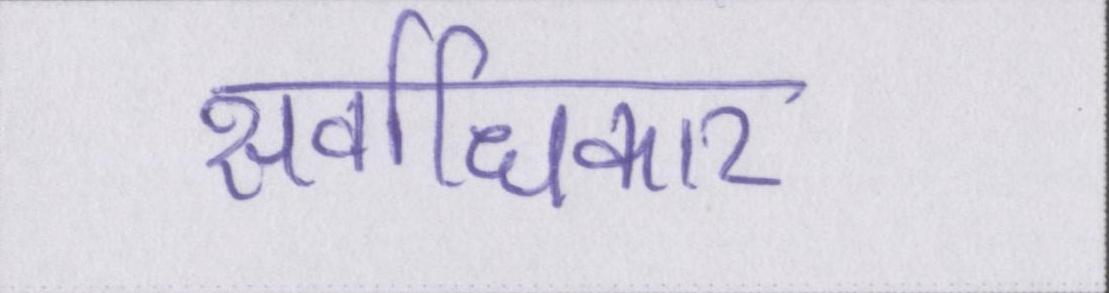 सर्वाधिकार